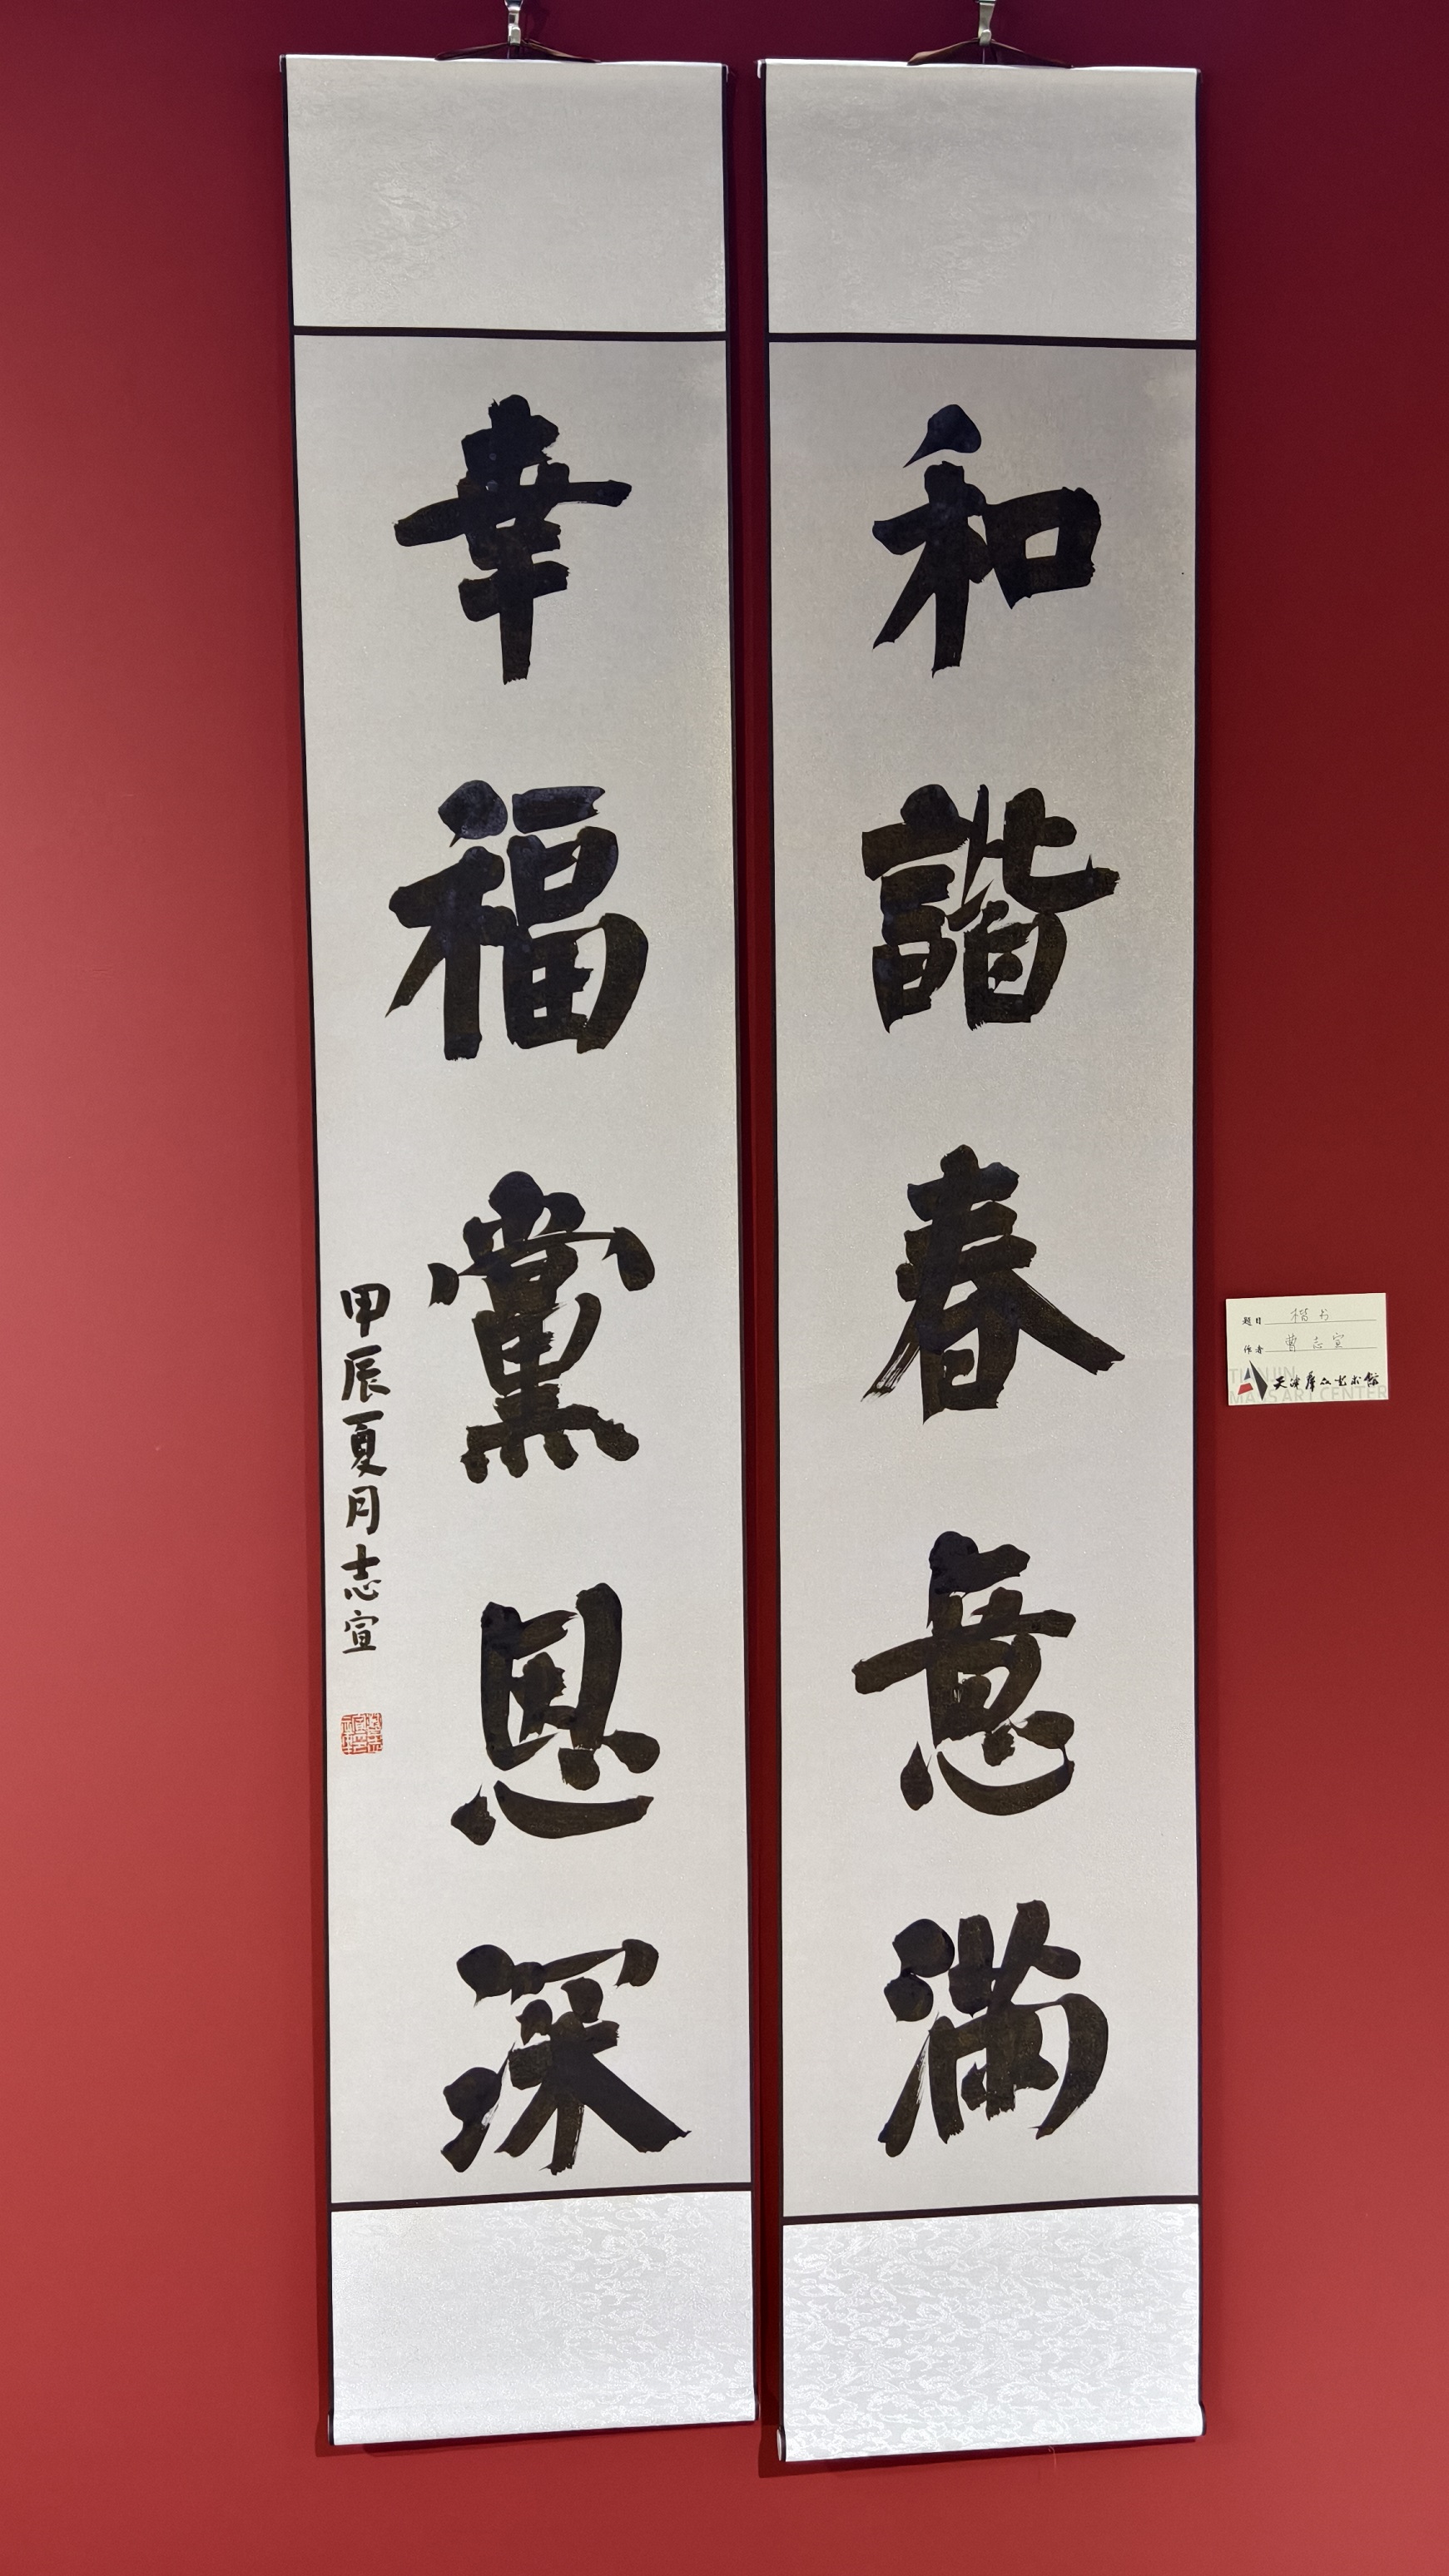 和諧春意滿
幸福黨恩深
甲辰夏月志宣
题目 楷书
作者 曹志宣
TIANJIN
MASS ART CENTER
天津群众艺术馆